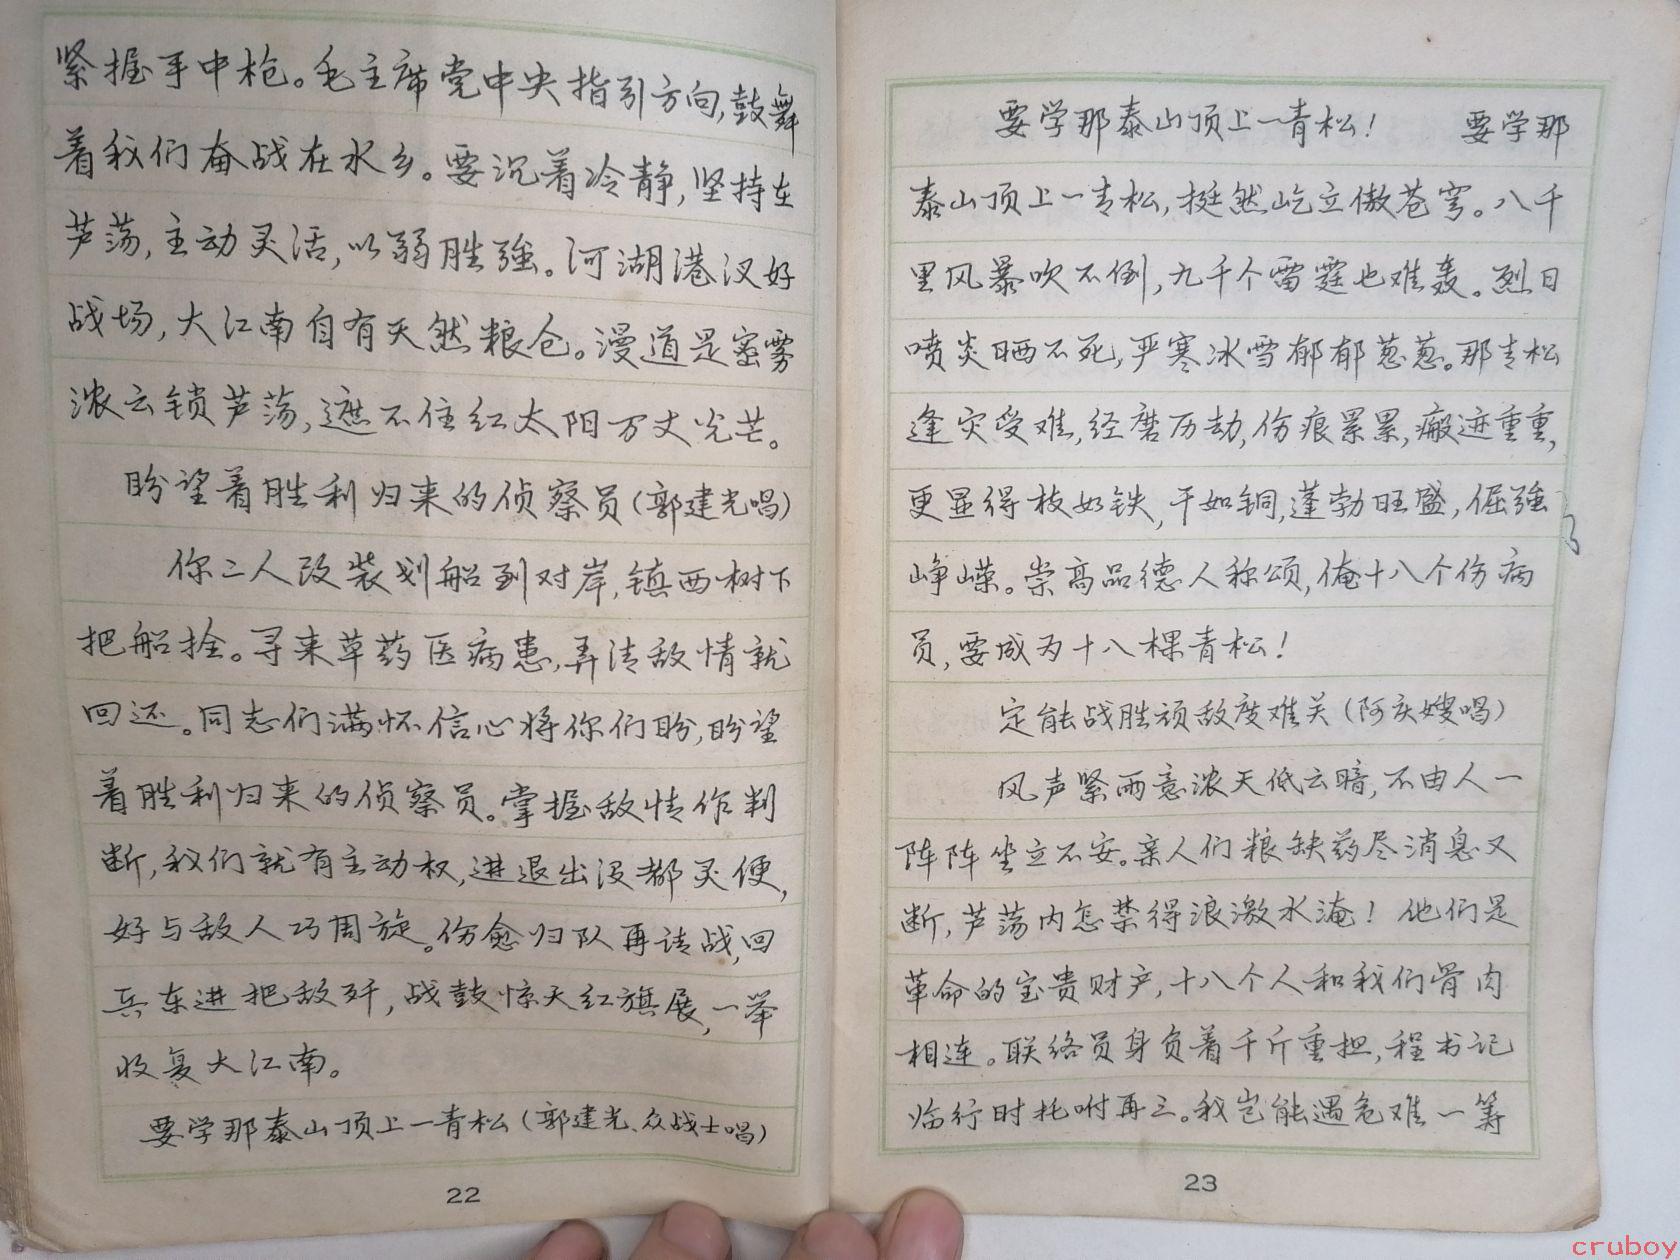 紧握手中枪。毛主席党中央指引方向,鼓舞
着我们奋战在水乡。要沉着冷静,坚持在
芦荡,主动灵活,以弱胜强。河湖港汊好
战场,大江南自有天然粮仓。漫道是密雾
浓云锁芦荡,遮不住红太阳万丈光芒。
盼望着胜利归来的侦察员(郭建光唱)
你二人改装划船到对岸,镇西树下
把船拴。寻来草药医病患,弄清敌情就
回还。同志们满怀信心将你们盼,盼望
着胜利归来的侦察员。掌握敌情作判
断,我们就有主动权,进退出没都灵便,
好与敌人巧周旋。伤愈归队再请战,回
兵东进把敌歼,战鼓惊天红旗展,一举
收复大江南。
要学那泰山顶上一青松(郭建光、众战士唱)
22
要学那泰山顶上一青松! 要学那
泰山顶上一青松,挺然屹立傲苍穹。八千
里风暴吹不倒,九千个雷霆也难轰。烈日
喷炎晒不死,严寒冰雪郁郁葱葱。那青松
逢灾受难,经磨历劫,伤痕累累,瘢迹重重,
更显得枝如铁,干如铜,蓬勃旺盛,倔强
峥嵘。崇高品德人称颂,俺十八个伤病
员,要成为十八棵青松!
定能战胜顽敌度难关(阿庆嫂唱)
风声紧雨意浓天低云暗,不由人一
阵阵坐立不安。亲人们粮缺药尽消息又
断,芦荡内怎禁得浪激水淹! 他们是
革命的宝贵财产,十八个人和我们骨肉
相连。联络员身负着千斤重担,程书记
临行时托咐再三。我岂能遇危难一筹
23
cruboy